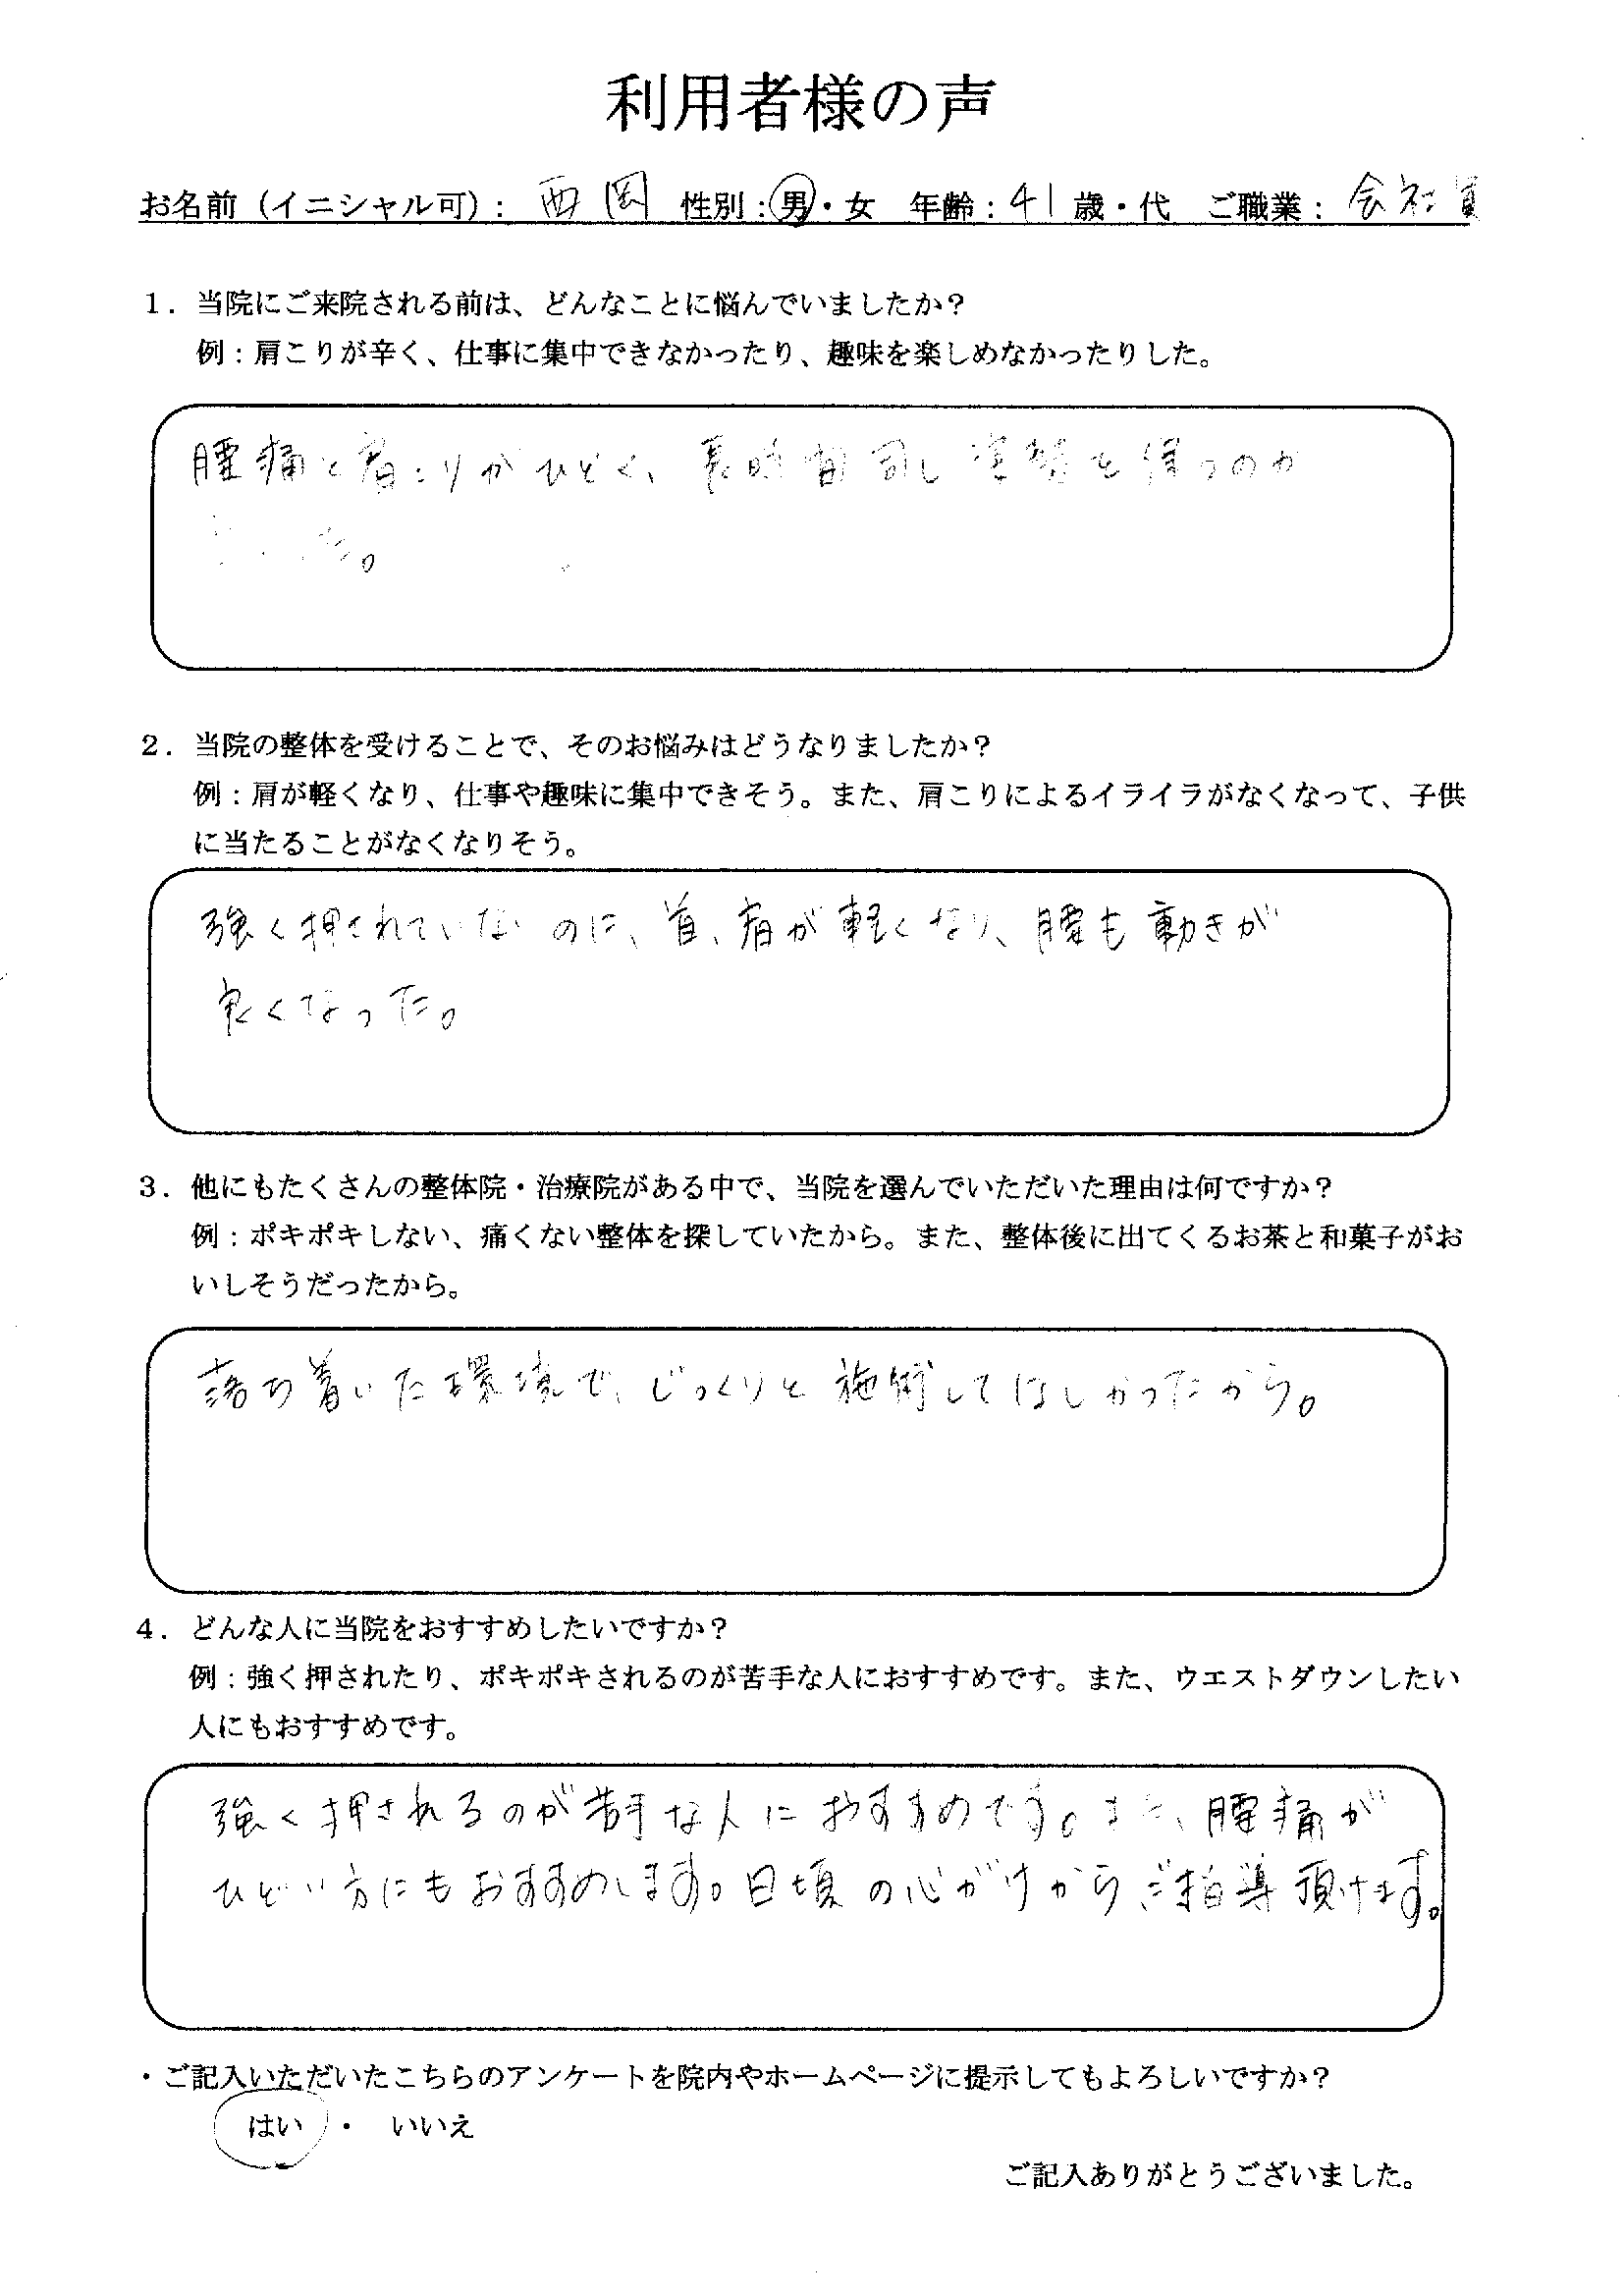 利用者様の声
お名前（イニシャル可）： 西岡 性別：男・女 年齢：41歳・代 ご職業：会社員
１．当院にご来院される前は、どんなことに悩んでいましたか？
例：肩こりが辛く、仕事に集中できなかったり、趣味を楽しめなかったりした。
腰痛と肩こりがひどく、長時間同じ姿勢を保つのが
た。
２．当院の整体を受けることで、そのお悩みはどうなりましたか？
例：肩が軽くなり、仕事や趣味に集中できそう。また、肩こりによるイライラがなくなって、子供
に当たることがなくなりそう。
強く押されていないのに、首、肩が軽くなり、腰も動きが
良くなった。
３．他にもたくさんの整体院・治療院がある中で、当院を選んでいただいた理由は何ですか？
例：ポキポキしない、痛くない整体を探していたから。また、整体後に出てくるお茶と和菓子がお
いしそうだったから。
落ち着いた環境で、じっくりと施術してほしかったから。
４．どんな人に当院をおすすめしたいですか？
例：強く押されたり、ポキポキされるのが苦手な人におすすめです。また、ウエストダウンしたい
人にもおすすめです。
強く押されるのが苦手な人におすすめです。また、腰痛が
ひどい方にもおすすめします。日頃の心がけからご指導頂けます。
・ご記入いただいたこちらのアンケートを院内やホームページに提示してもよろしいですか？
はい ・ いいえ
ご記入ありがとうございました。